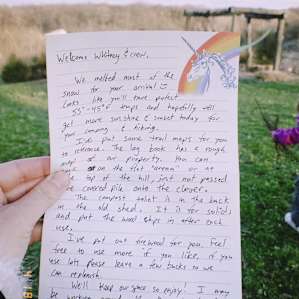 Welcome Whitney & crew,
We melted most of the
snow for your arrival!
Looks like you'll have perfect
55°-45°F temps and hopefully will
get more sunshine & sunset today for
your camping & hiking.
I've put some trail maps for you
to reference. The log book has a rough
map of our property. You can
on the flat "arena" or at
top of the hill, just not pressed
covered pile onto the clover.
The compost toilet is in the back
in the old shed. It is for solids
and put the wood chips in after each
use.
I've put out firewood for you. Feel
free to use more if you like, if you
use lots please leave a few bucks so we
can replenish.
We'll keep our space so enjoy! I may
be working